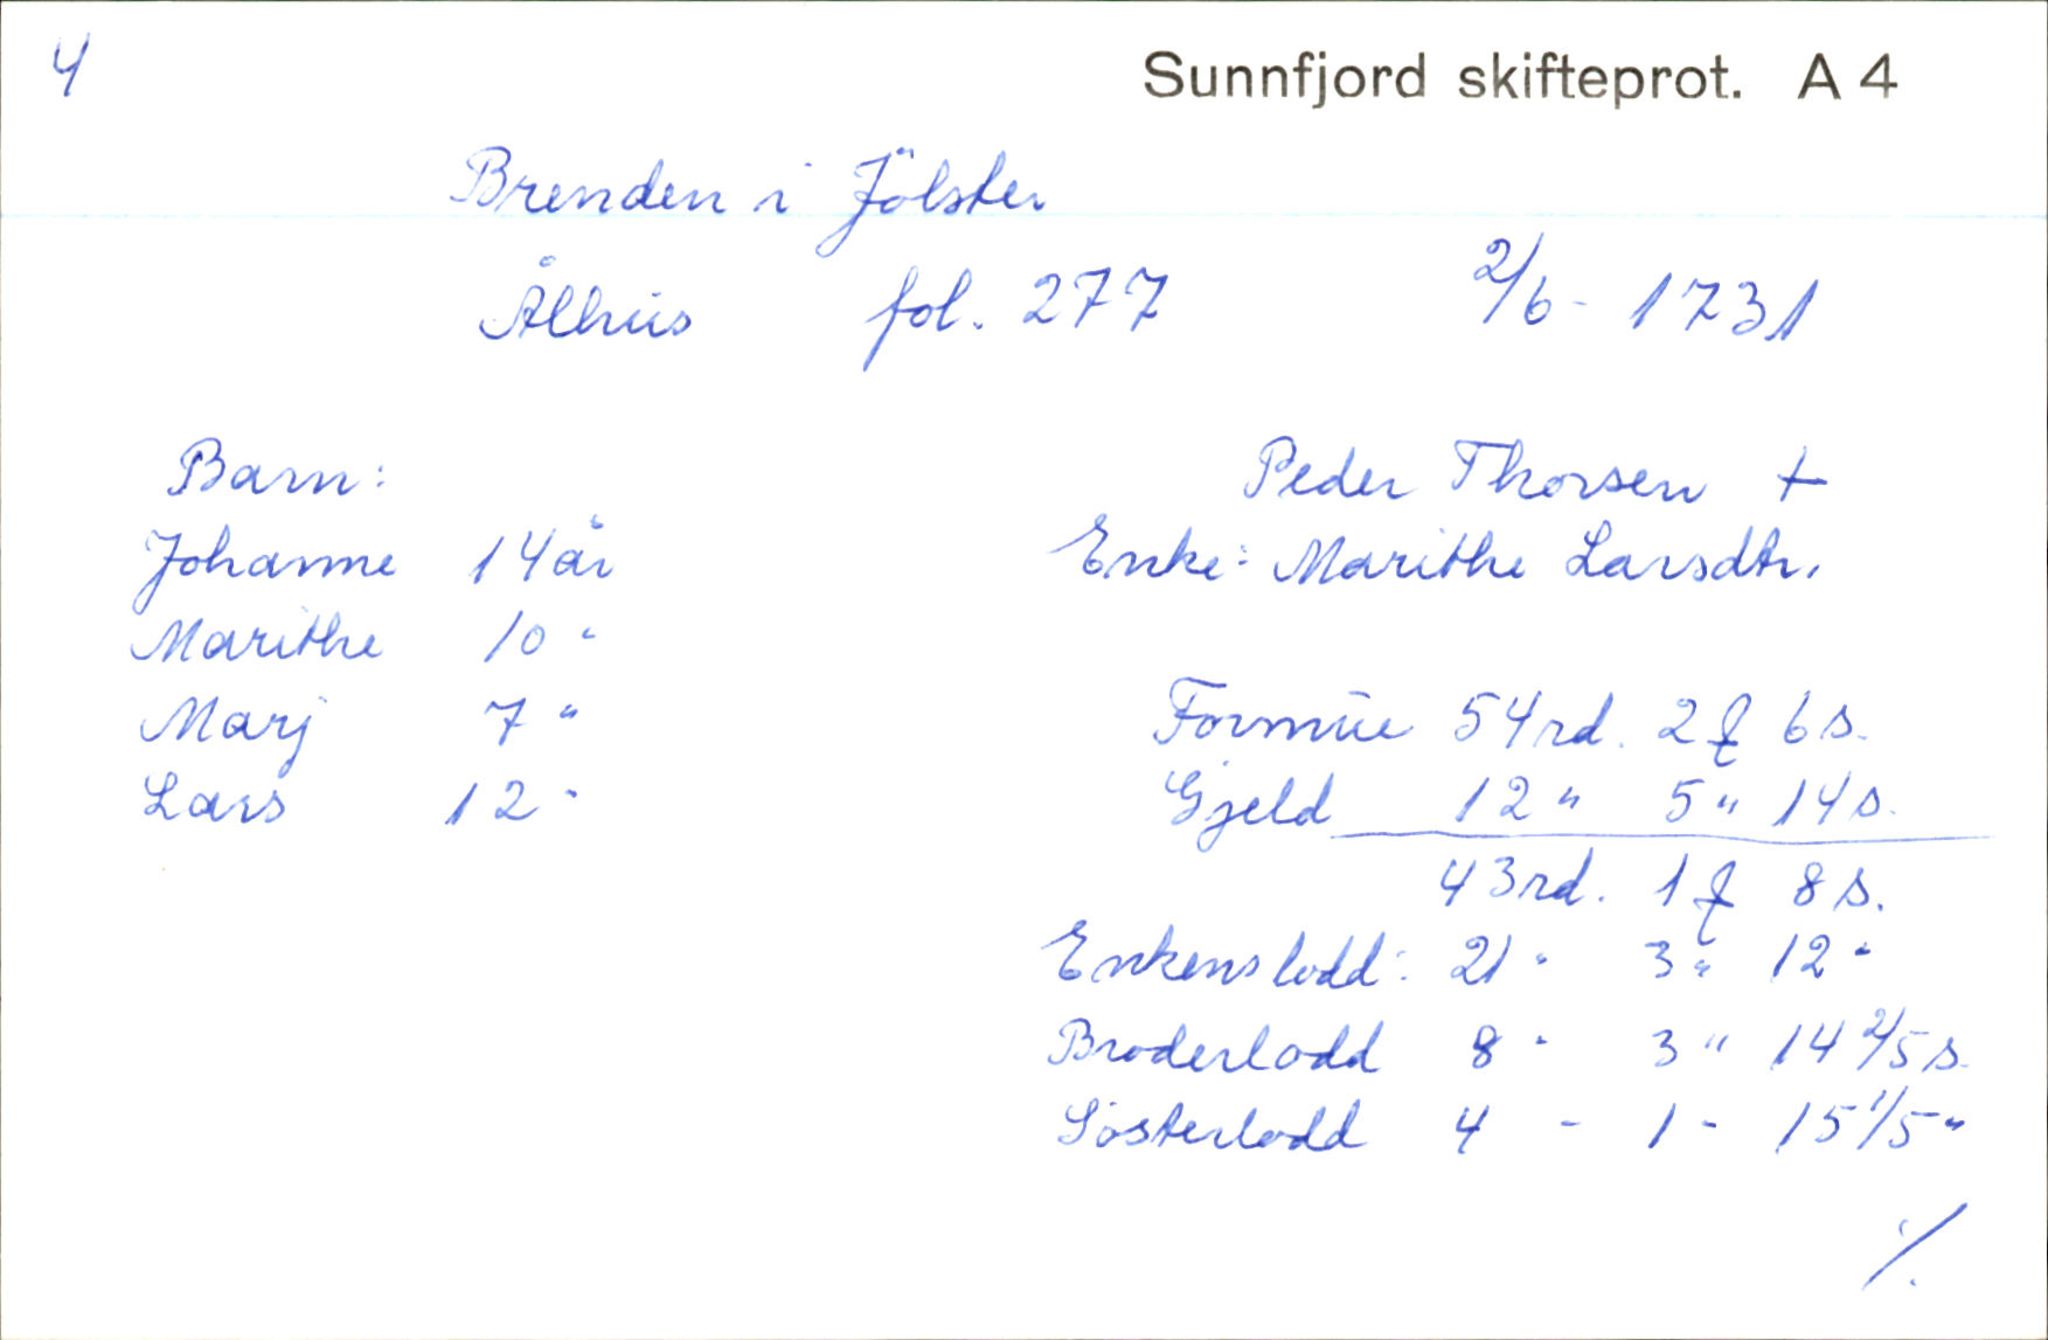 4
Sunnfjord skifteprot. A 4
Brenden i Jölster
Ålhus fol. 277 2/6 - 1731
Barn:
Johanne 14 år
Marithe 10 "
Marj 7 "
Lars 12 "
Peder Thorsen +
Enke: Marithe Larsdtr.
Formue 54 rd. 2 ƒ 6 s.
Gjeld 12 " 5 " 14 s.
43 rd. 1 ƒ 8 s.
Enkens lodd: 21 " 3 " 12 "
Broderlodd 8 " 3 " 14 2/5 s.
Sösterlodd 4 - 1 - 15 1/5 "
·/.